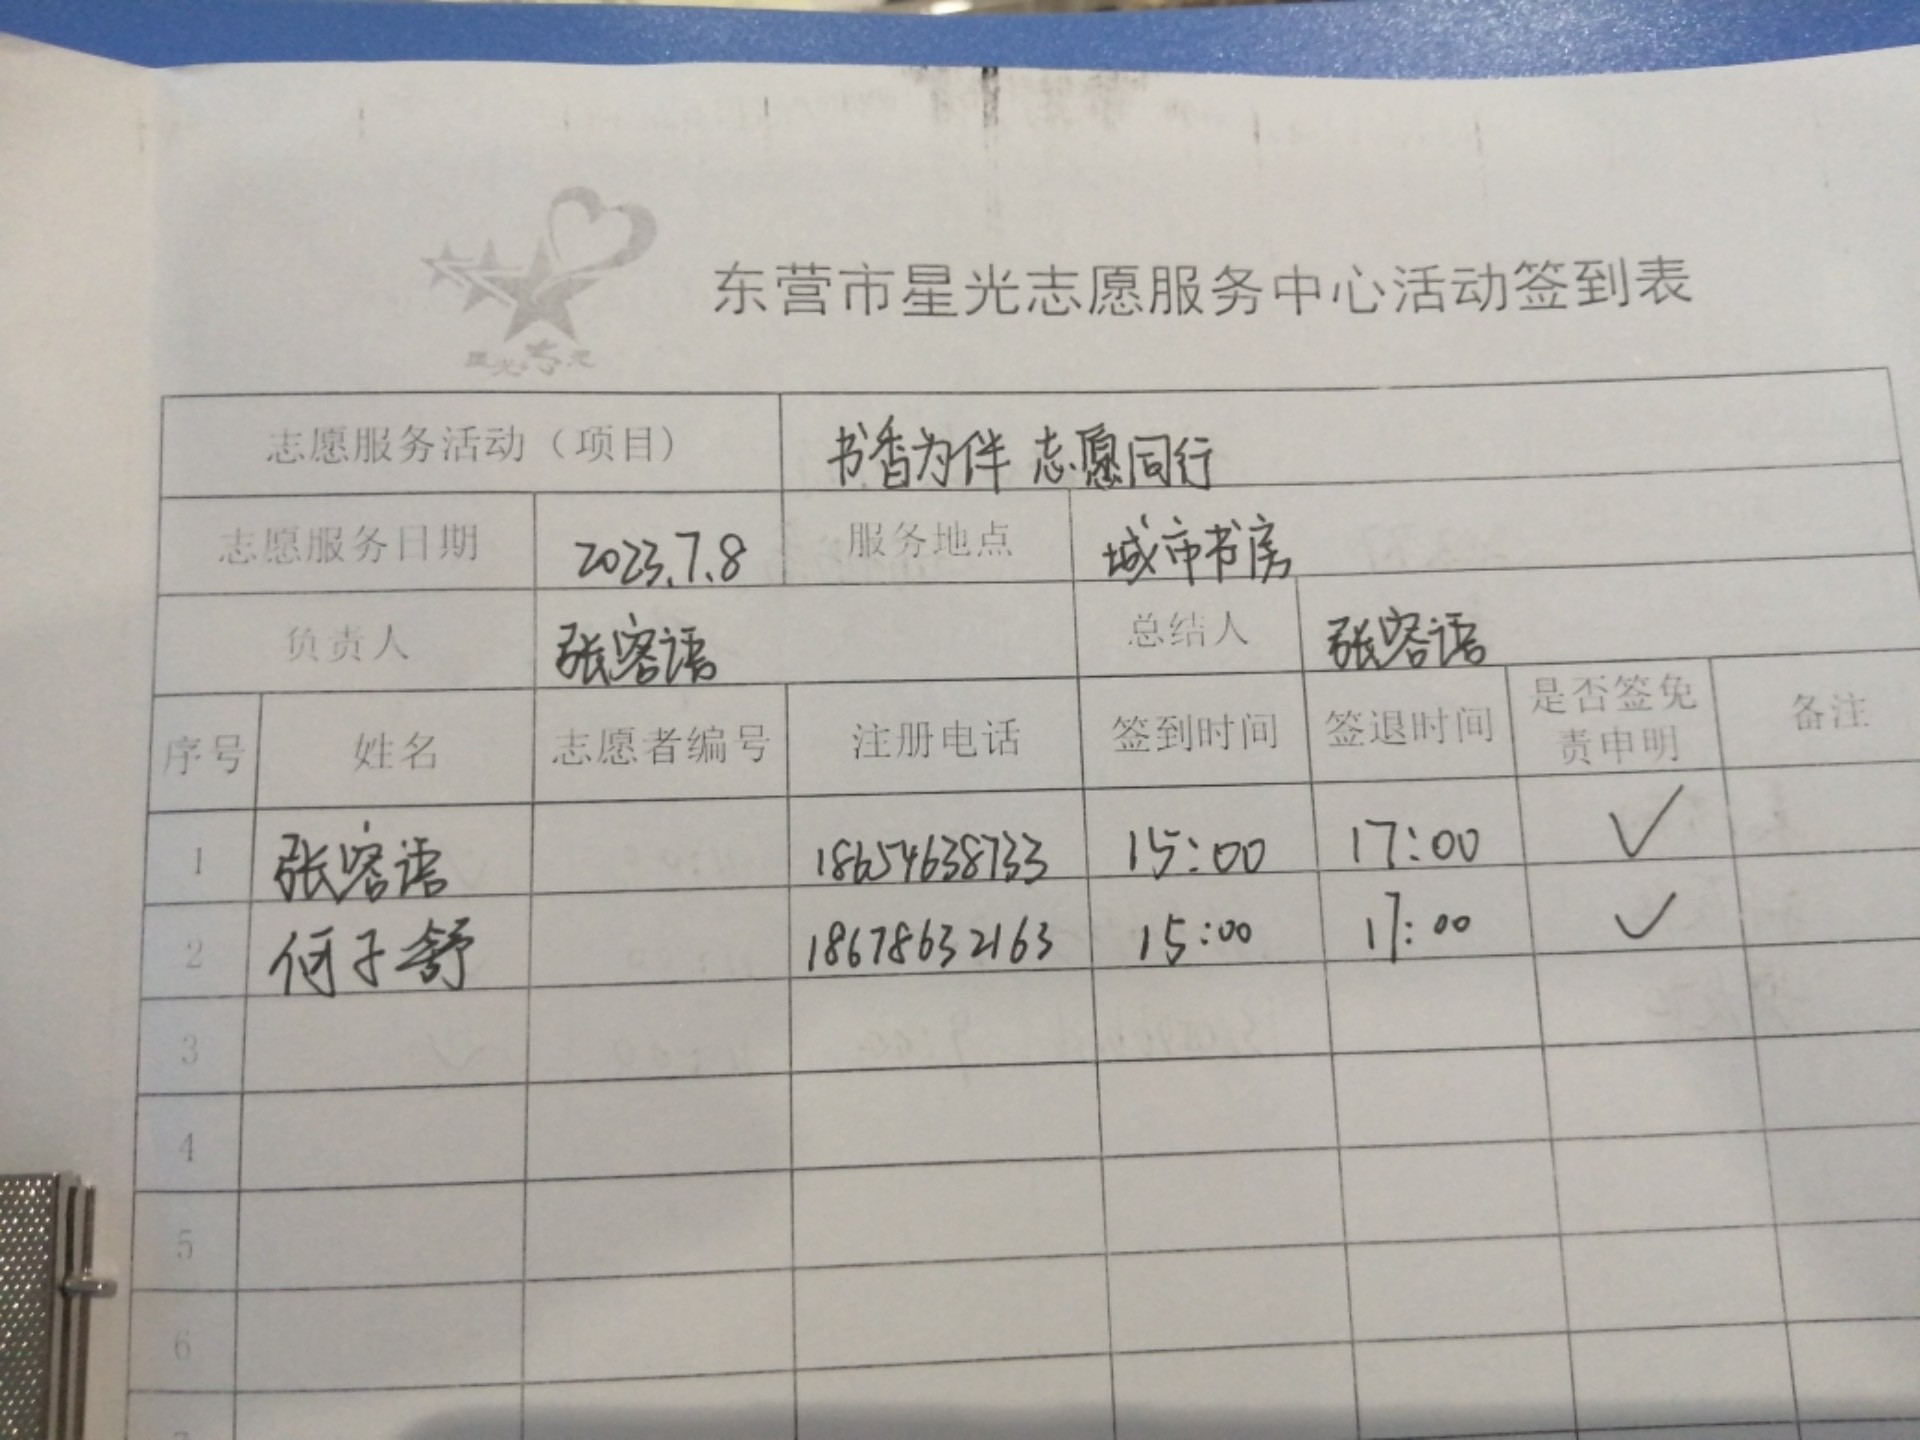 星光志愿
东营市星光志愿服务中心活动签到表
志愿服务活动（项目） 书香为伴 志愿同行
志愿服务日期 2023.7.8 服务地点 城市书房
负责人 张容语 总结人 张容语
序号 姓名 志愿者编号 注册电话 签到时间 签退时间 是否签免责申明 备注
1 张容语 18654638733 15:00 17:00 ✓
2 何子舒 18678632163 15:00 17:00 ✓
3
4
5
6